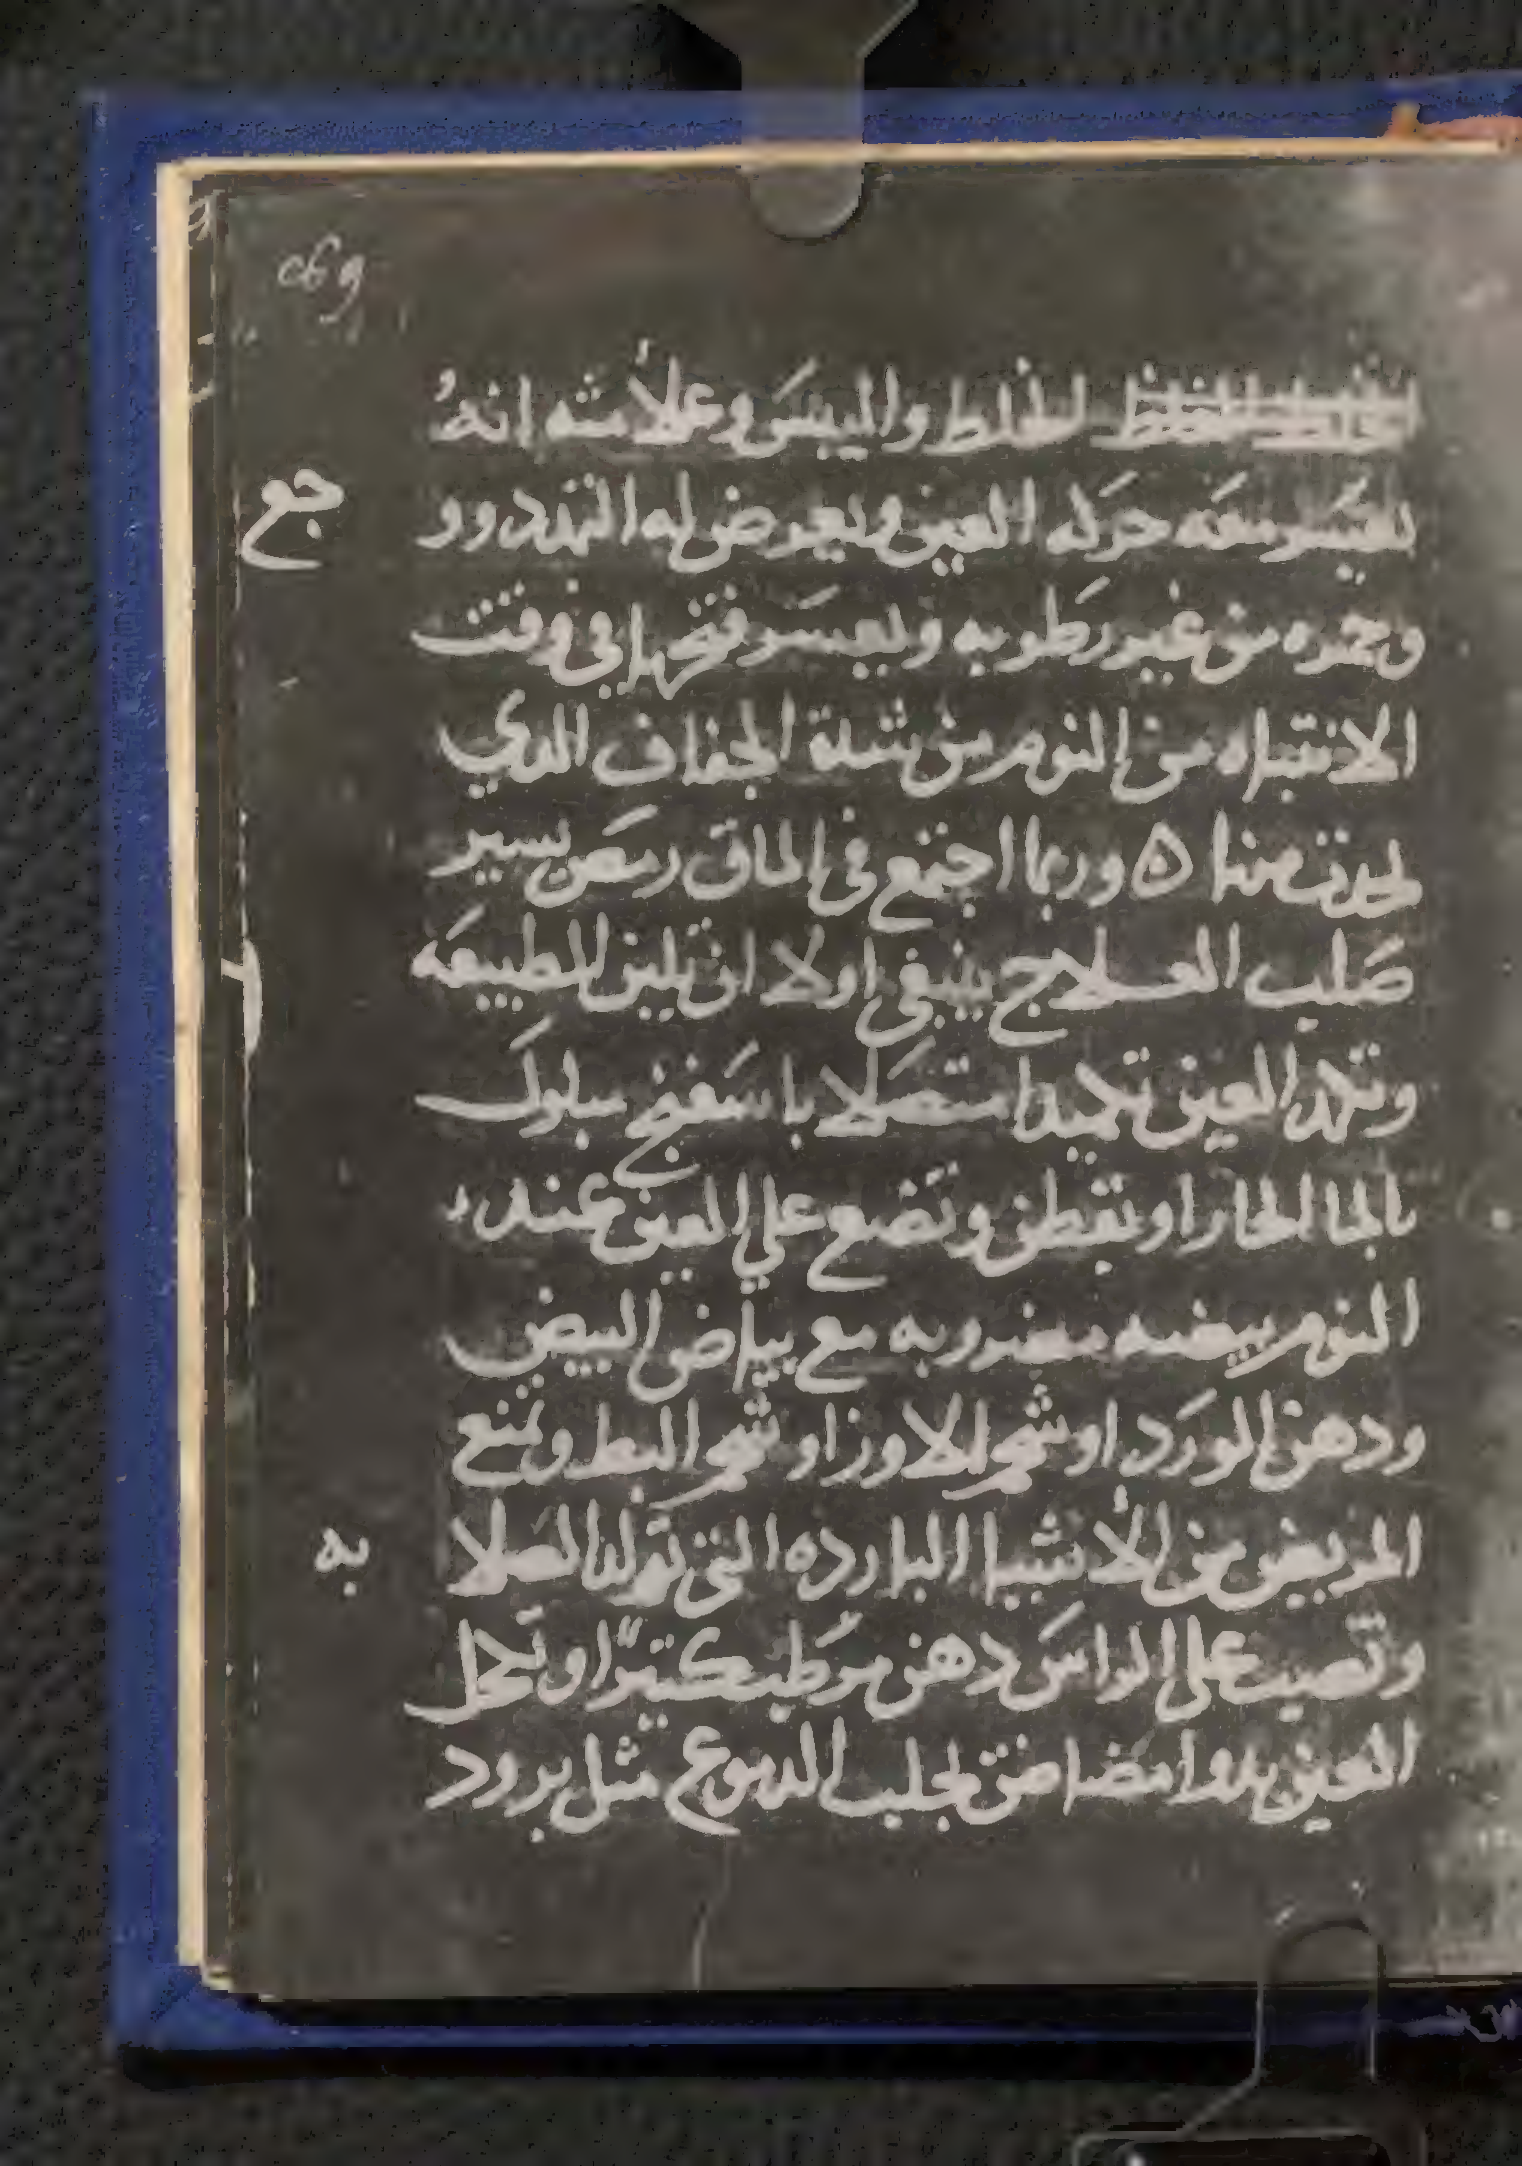 لغلظ واليبس وعلامته انهُ
يعسر معه حركه العين ويعرض له التمدد و و
جع
وحمره من غير رطوبه ويعسر فتحها في وقت
الانتباه من النوم من شدة الجفاف الذي
يحدث منها ٥ وربما اجتمع في الماق رمص يسير
صلب العلاج ينبغي اولا ان تلين الطبيعه
وتكمد العين تكميدا متصلا باسفنج مبلول
بالما الحار او بقطن وتضع علي العين عند
النوم بيضه مضروبه مع بياض البيض
ودهن الورد او شحم الاوز او شحم البط وتمنع
المريض من الأشيا البارده التي تولد الصلا
به
وتصب على الراس دهن مرطب كثيرًا وتكحل
العين بدوا مضاض يجلب الدموع مثل برود